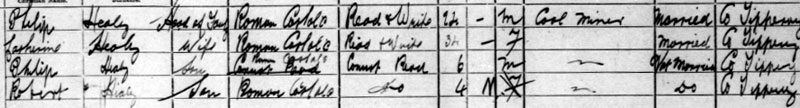 Philip Healy Head of Fam Roman Catholic Read & Write - M Coal Miner Married Co Tipperary
Catherine Healy Wife Roman Catholic Read & Write - F Married Co Tipperary
Philip Healy Son Roman Catholic Cannot Read 6 M Not Married Co Tipperary
Robert Healy Son Roman Catholic Do 4 M Do Co Tipperary